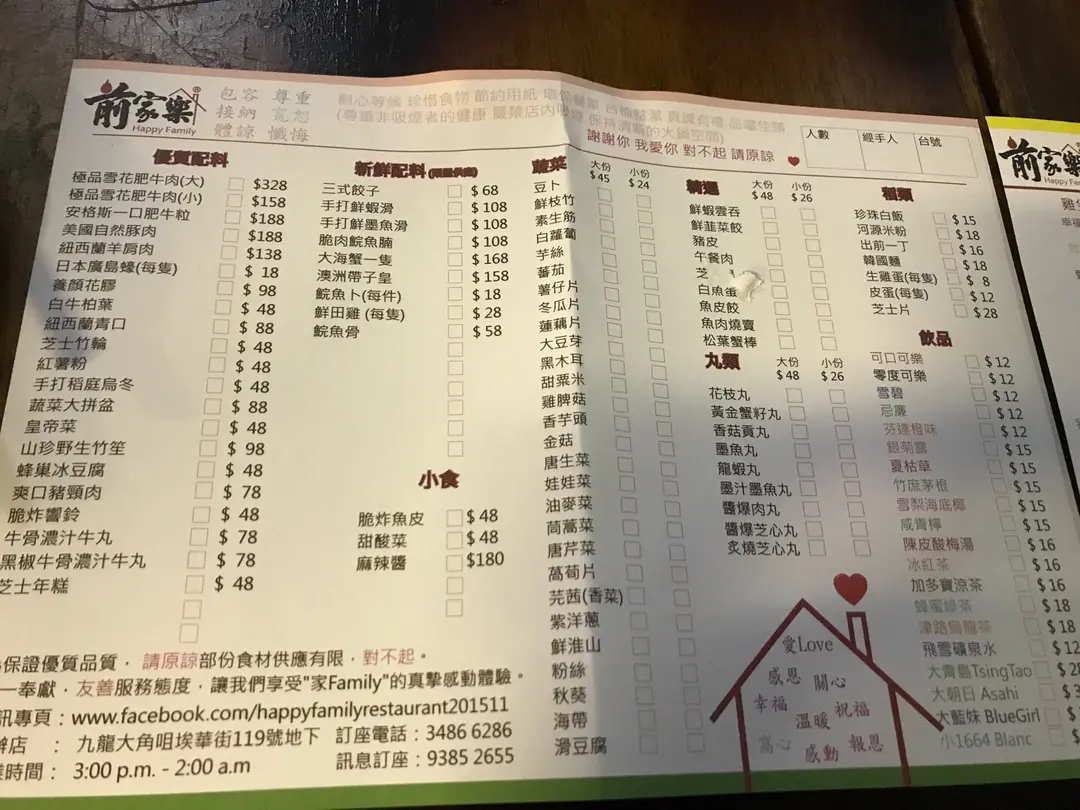 前家樂
Happy Family
包容 尊重
接納 寬恕
體諒 懺悔
耐心等候 珍惜食物 節約用紙
(尊重非吸煙者的健康 嚴禁店內吸煙 保持清新的火鍋空間)
謝謝你 我愛你 對不起 請原諒
人數 經手人 台號
優質配料
極品雪花肥牛肉(大) $328
極品雪花肥牛肉(小) $158
安格斯一口肥牛粒 $188
美國自然豚肉 $188
紐西蘭羊肩肉 $138
日本廣島蠔(每隻) $ 18
養顏花膠 $ 98
白牛柏葉 $ 48
紐西蘭青口 $ 88
芝士竹輪 $ 48
紅薯粉 $ 48
手打稻庭烏冬 $ 48
蔬菜大拼盆 $ 88
皇帝菜 $ 48
山珍野生竹笙 $ 98
蜂巢冰豆腐 $ 48
爽口豬頸肉 $ 78
脆炸響鈴 $ 48
牛骨濃汁牛丸 $ 78
黑椒牛骨濃汁牛丸 $ 78
芝士年糕 $ 48
新鮮配料
三式餃子 $ 68
手打鮮蝦滑 $ 108
手打鮮墨魚滑 $ 108
脆肉鯇魚腩 $ 108
大海蟹一隻 $ 168
澳洲帶子皇 $ 158
鯇魚卜(每件) $ 18
鮮田雞 (每隻) $ 28
鯇魚骨 $ 58
小食
脆炸魚皮 $ 48
甜酸菜 $ 48
麻辣醬 $180
蔬菜 大份 小份
$ 45 $ 24
豆卜
鮮枝竹
素生筋
白蘿蔔
芋絲
蕃茄
薯仔片
冬瓜片
蓮藕片
大豆芽
黑木耳
甜粟米
雞脾菇
香芋頭
金菇
唐生菜
娃娃菜
油麥菜
茼蒿菜
唐芹菜
萵荀片
芫茜(香菜)
紫洋蔥
鮮淮山
粉絲
秋葵
海帶
滑豆腐
精選 大份 小份
$ 48 $ 26
鮮蝦雲吞
鮮韮菜餃
豬皮
午餐肉
芝
白魚蛋
魚皮餃
魚肉燒賣
松葉蟹棒
丸類 大份 小份
$ 48 $ 26
花枝丸
黃金蟹籽丸
香菇貢丸
墨魚丸
龍蝦丸
墨汁墨魚丸
醬爆肉丸
醬爆芝心丸
炙燒芝心丸
稻類
珍珠白飯 $ 15
河源米粉 $ 18
出前一丁 $ 16
韓國麵 $ 18
生雞蛋(每隻) $ 8
皮蛋(每隻) $ 12
芝士片 $ 28
飲品
可口可樂 $ 12
零度可樂 $ 12
雪碧 $ 12
忌廉 $ 12
芬達橙味 $ 12
銀菊露 $ 15
夏枯草 $ 15
竹庶茅根 $ 15
雪梨海底椰 $ 15
咸青檸 $ 15
陳皮酸梅湯 $ 16
冰紅茶 $ 16
加多寶涼茶 $ 16
蜂蜜綠茶 $ 18
津路烏龍茶 $ 18
飛雪礦泉水 $ 12
大青島TsingTao
大朝日 Asahi
大藍妹 BlueGirl
小1664 Blanc
保證優質品質，請原諒部份食材供應有限，對不起。
一奉獻，友善服務態度，讓我們享受"家Family"的真摯感動體驗。
訊專頁：www.facebook.com/happyfamilyrestaurant201511
店 ： 九龍大角咀埃華街119號地下 訂座電話：3486 6286
時間： 3:00 p.m. - 2:00 a.m 訊息訂座：9385 2655
愛Love
感恩 關心
幸福 溫暖 祝福
窩心 感動 報恩
前家樂
Happy Family